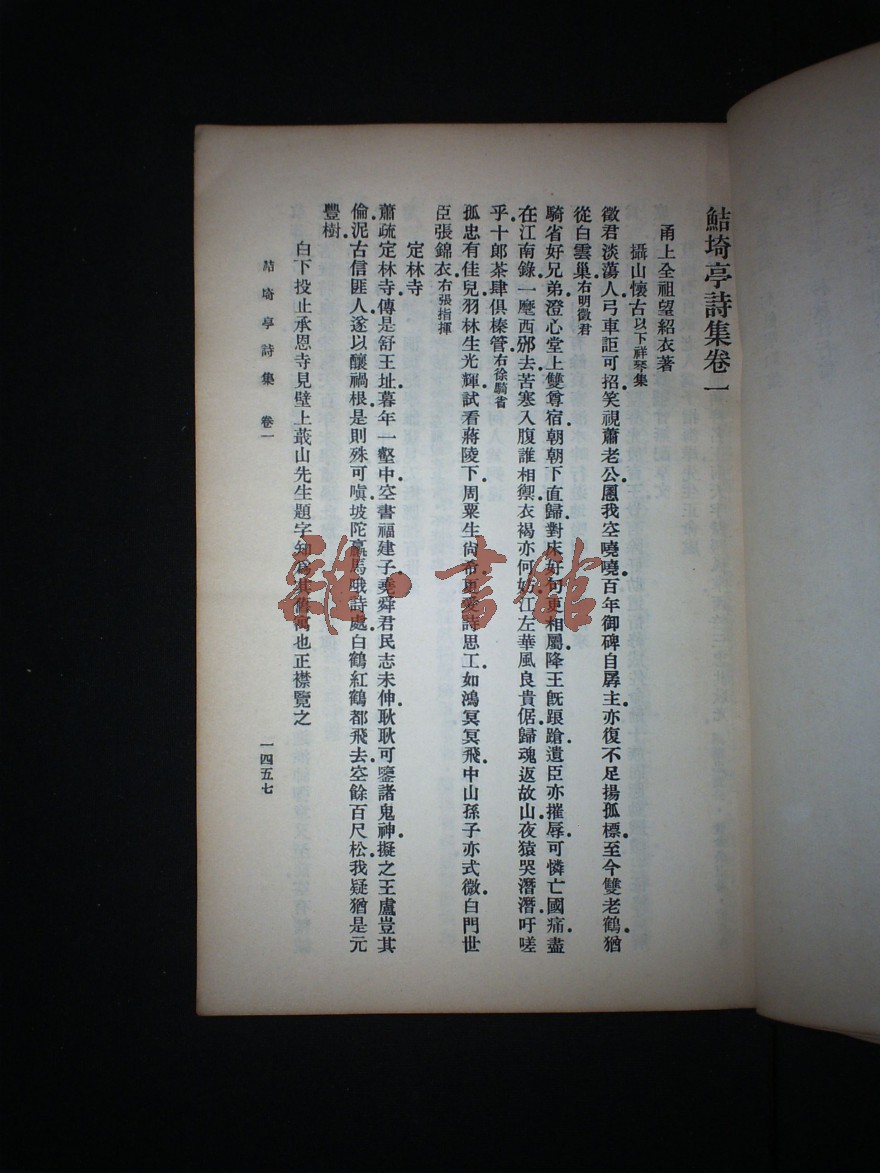 鮚埼亭詩集卷一
甬上全祖望紹衣著
攝山懷古以下祥琴集
徵君淡蕩人弓車詎可招笑視蕭老公慁我空嘵嘵百年御碑自孱主亦復不足揚孤標至今雙老鶴猶
從白雲巢右明徵君
騎省好兄弟澄心堂上雙尊宿朝朝下直歸對床好句更相屬降王既踉蹌遺臣亦摧辱可憐亡國痛盡
在江南錄一麾西邠去苦寒入腹誰相禦衣褐亦何妨江左華風良貴倨歸魂返故山夜猿哭潛潛吁嗟
乎十郎茶肆俱榛管右徐騎省
孤忠有佳兒羽林生光輝試看蔣陵下周粟生尙希更愛詩思工如鴻冥冥飛中山孫子亦式微白門世
臣張錦衣右張指揮
定林寺
蕭疏定林寺傳是舒王址暮年一壑中空書福建子堯舜君民志未伸耿耿可鑒諸鬼神擬之王盧豈其
倫泥古信匪人遂以釀禍根是則殊可嗔坡陀羸馬哦詩處白鶴紅鶴都飛去空餘百尺松我疑猶是元
豐樹
白下投止承恩寺見壁上蕺山先生題字知爲其舊寓也正襟覽之
鮚埼亭詩集 卷一
一四五七
雜·書館